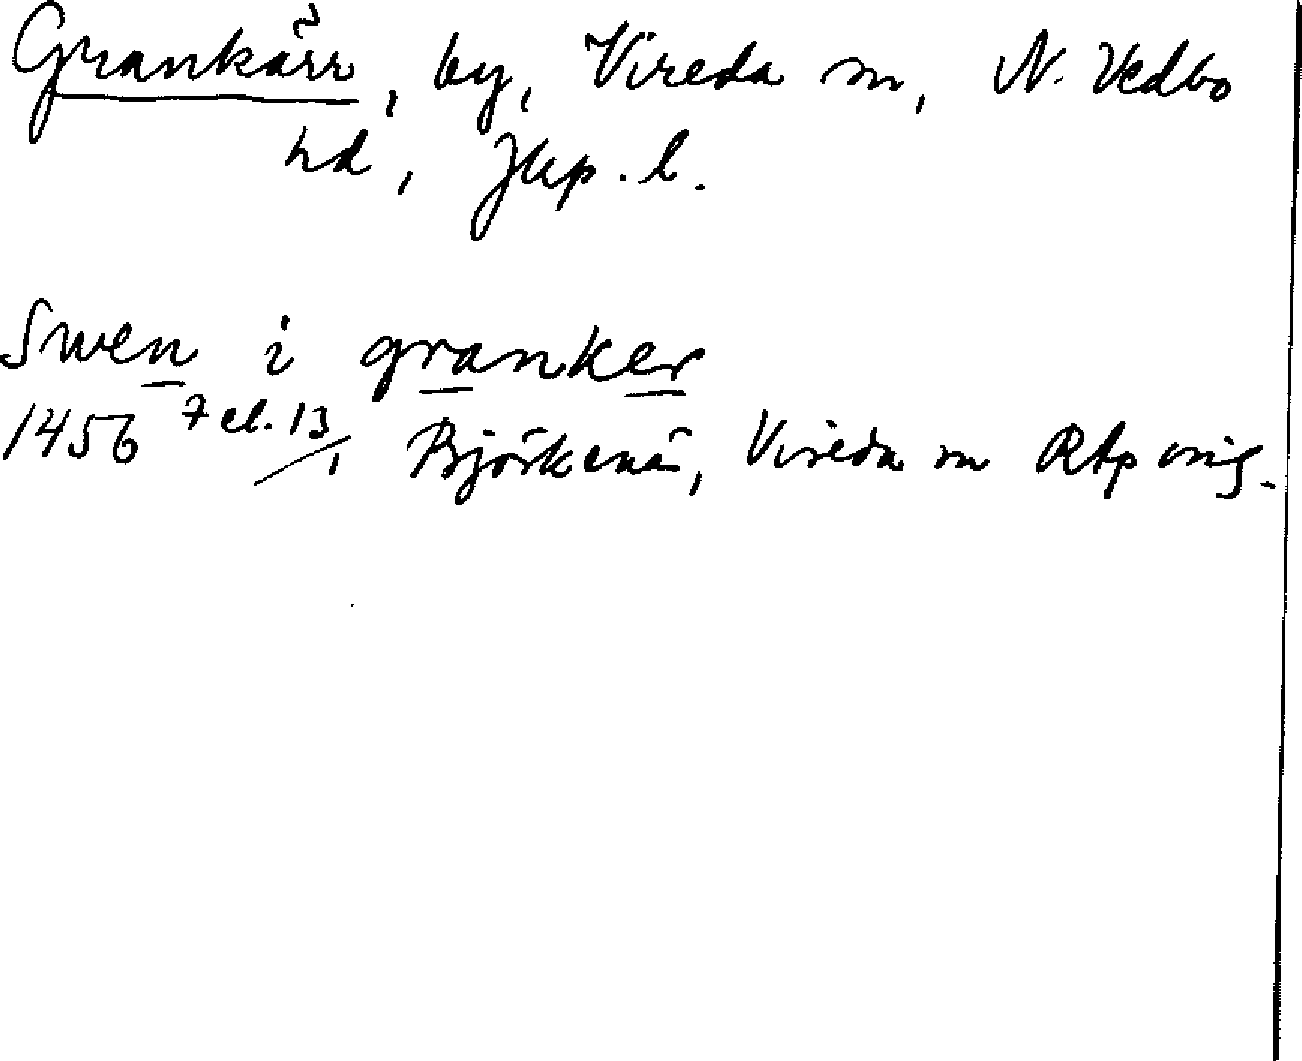 Grankärr, by, Vireda sn, N. Vedbo
hd, Jkp. l.
Swen i granker
1456 7 el. 13/1 Björkenäs, Vireda sn RAp orig.